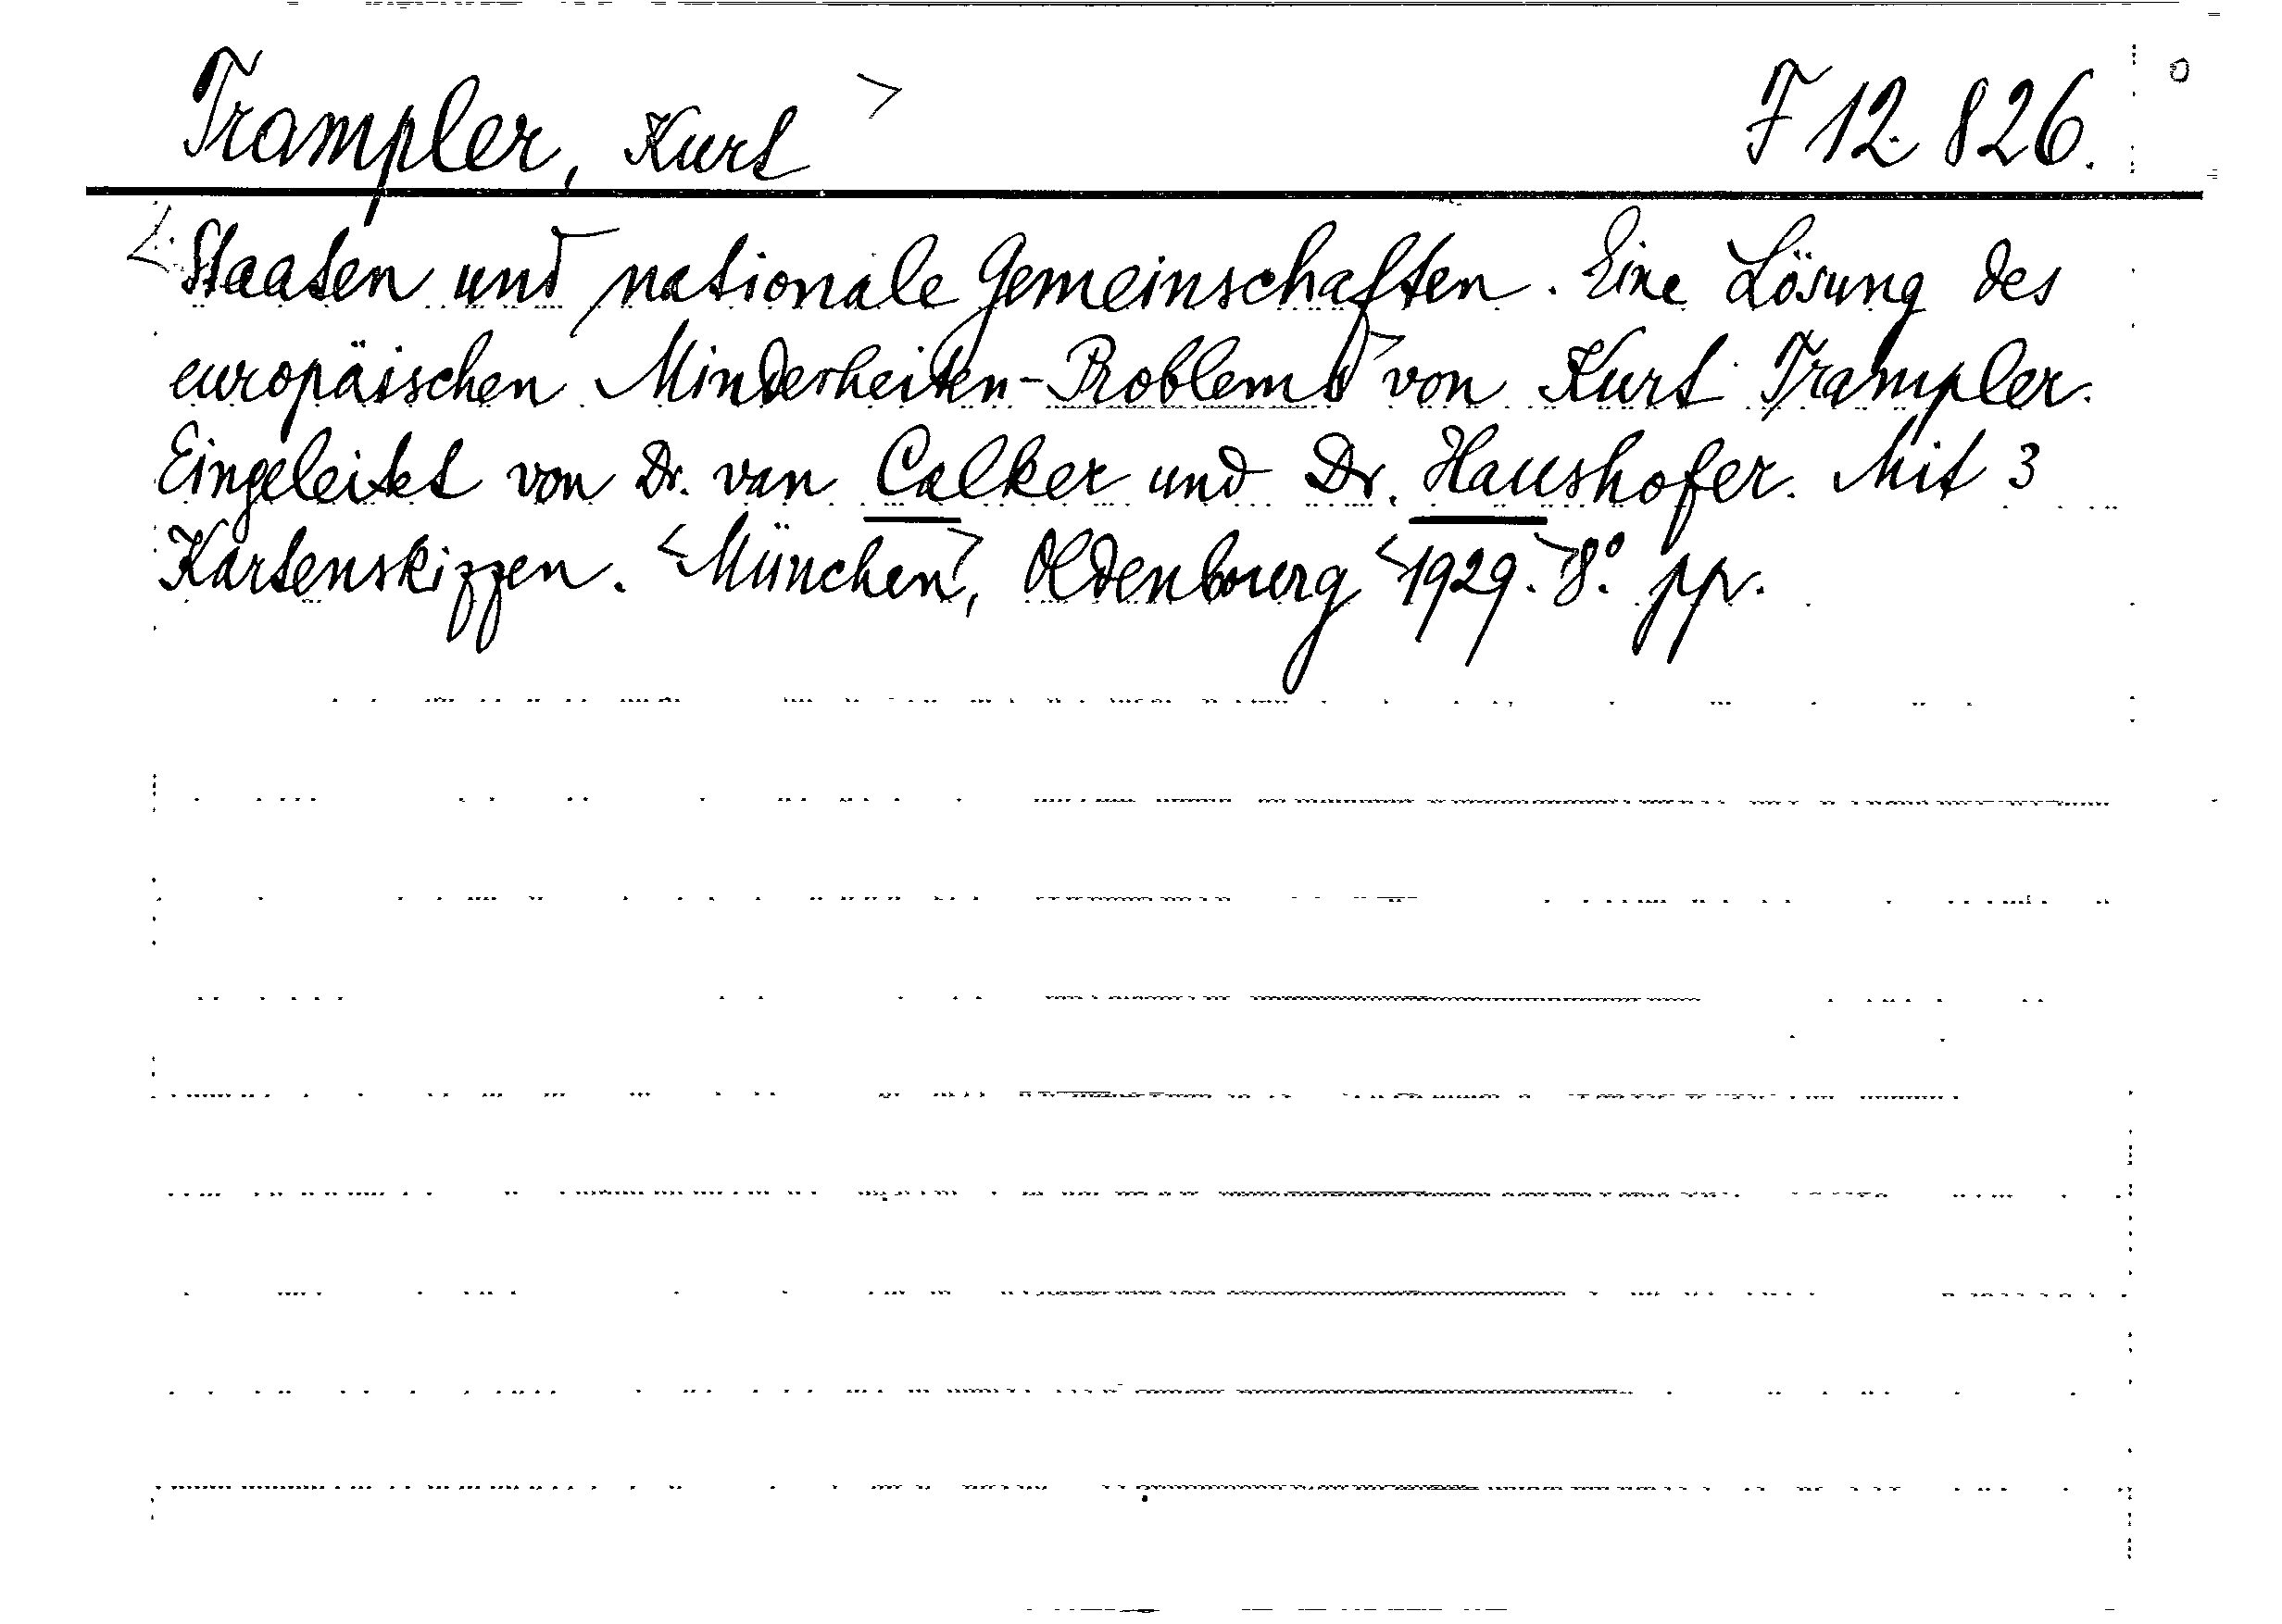 Trampler, Kurt > F 12. 826.
<Staaten und nationale Gemeinschaften. Eine Lösung des
europäischen Minderheiten-Problems> von Kurt Trampler.
Eingeleitet von Dr. van Calker und Dr. Haushofer. Mit 3
Kartenskizzen. <München>, Oldenbourg <1929.> 8°. pp.